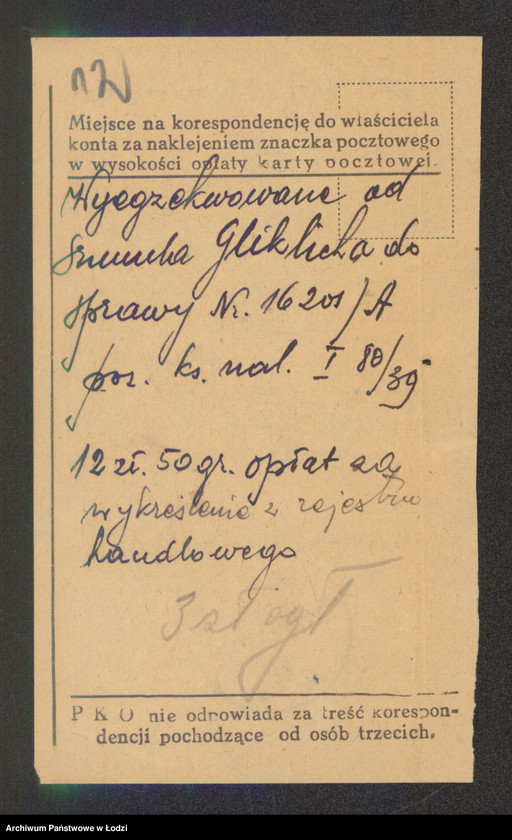 Miejsce na korespondencję do właściciela
konta za naklejeniem znaczka pocztowego
w wysokości opłaty karty pocztowej.
Wyegzekwowane od
Szmula Gliklicha do
sprawy Nr. 16201/A
poz. ks. nal. I 80/39
12 zł. 50 gr. opłat za
wykreślenie z rejestru
handlowego
3 zł ogł
P K O nie odpowiada za treść korespon-
dencji pochodzące od osób trzecich.
Archiwum Państwowe w Łodzi